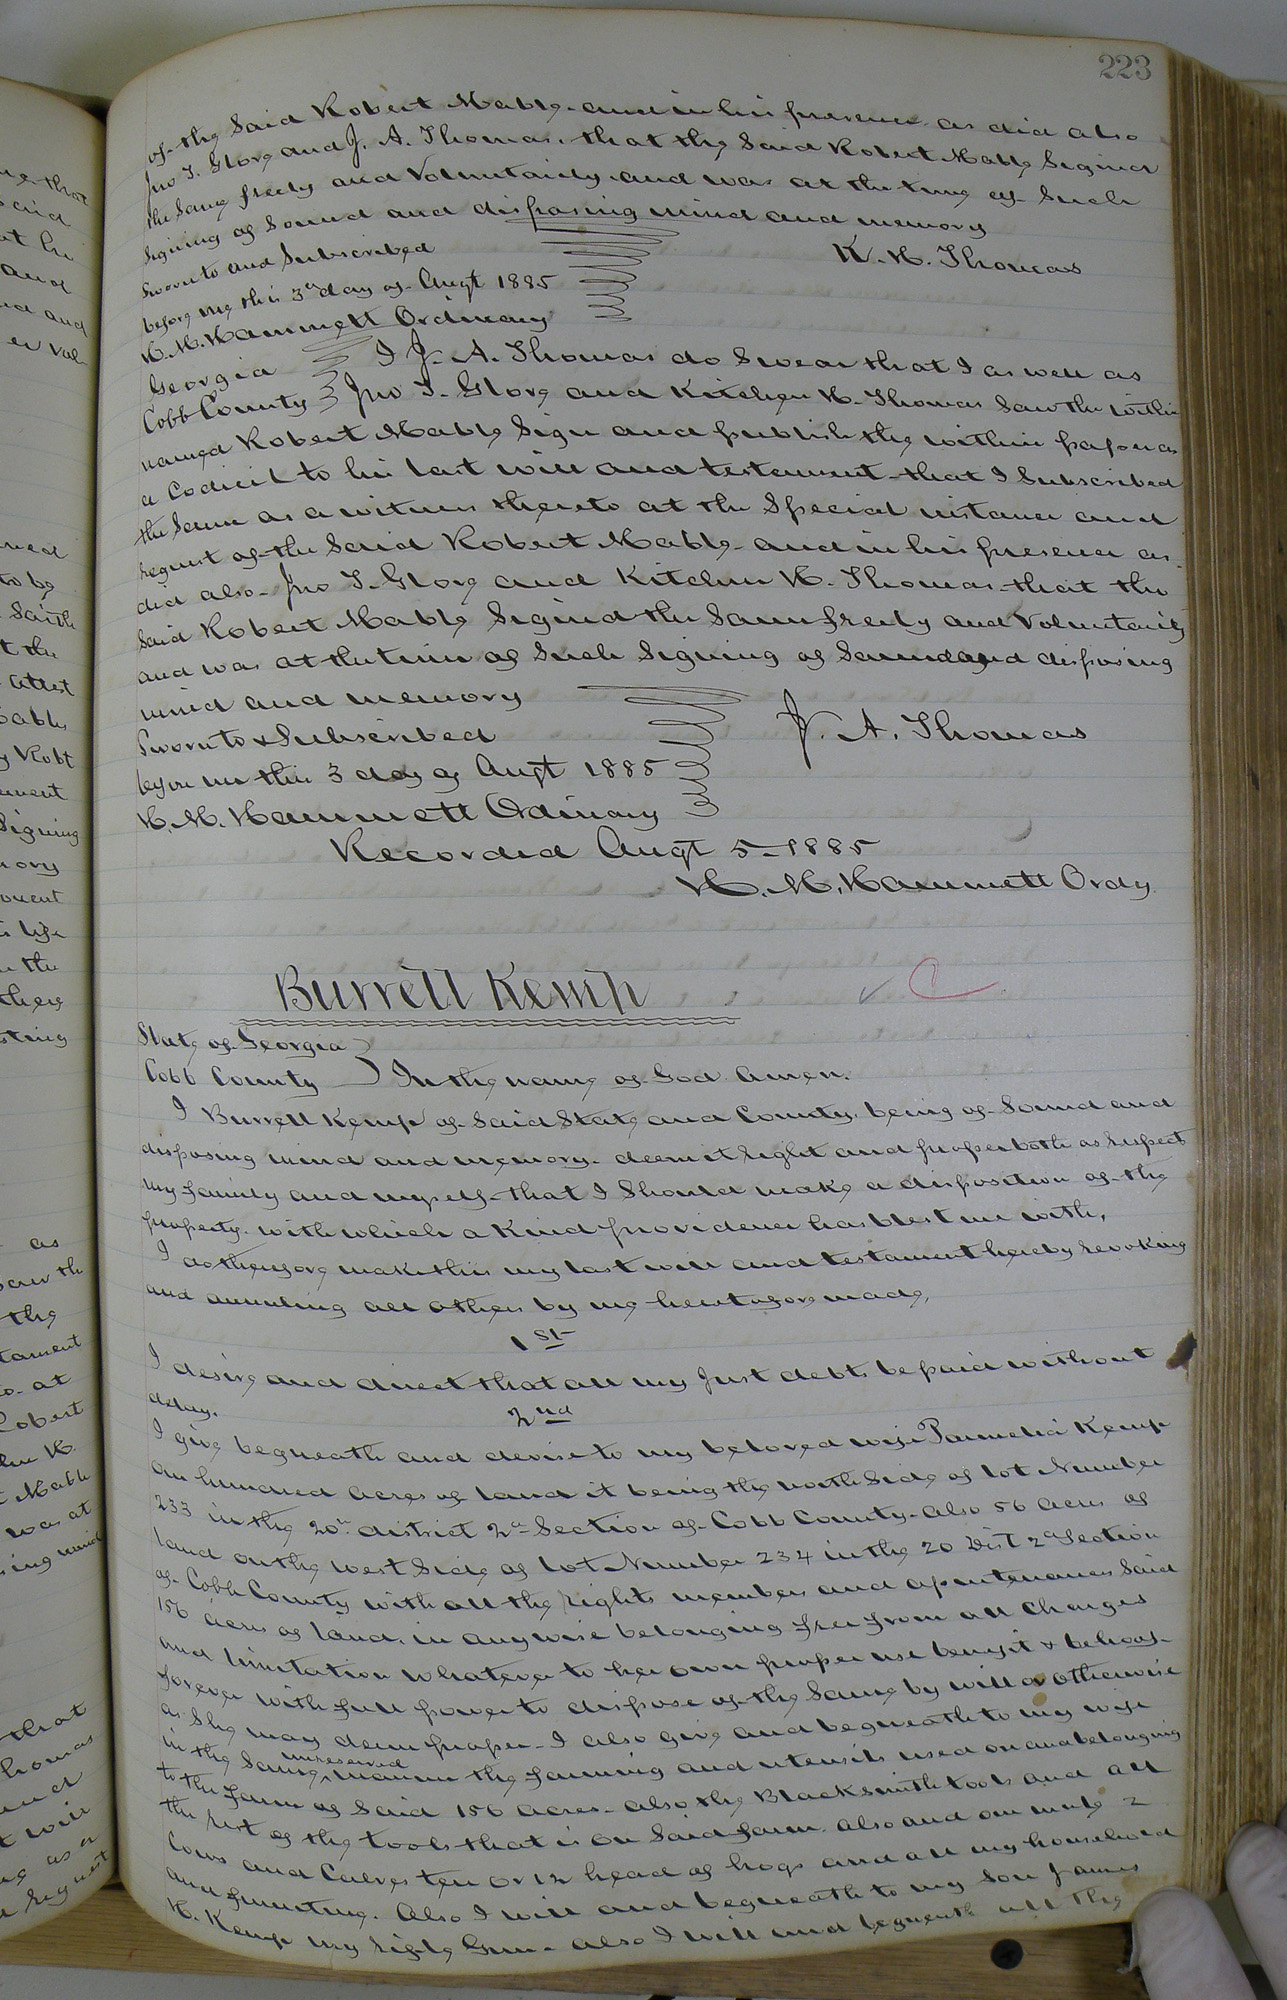 223
of the Said Robert Mable and in his presence as did also
Jno T. Glore and J. A. Thomas. that the Said Robert Mable Signed
the Same freely and Voluntarily and was at the time of Such
Signing of Sound and disposing mind and memory
Sworn to and Subscribed K. H. Thomas
before me this 3d day of Augt 1885
H. M. Hammett Ordinary
Georgia I J. A. Thomas do Swear that I as well as
Cobb County Jno T. Glore and Kitchen H. Thomas Saw the within
named Robert Mable Sign and publish the within paper as
a Codicil to his last will and testament that I Subscribed
the Same as a witness thereto at the Special instance and
request of the Said Robert Mable and in his presence as
did also Jno T. Glore and Kitchen H. Thomas that the
Said Robert Mable Signed the Same freely and Voluntarily
and was at the time of Such Signing of Sound and disposing
mind and memory
Sworn to & Subscribed J. A. Thomas
before me this 3 day of Augt 1885
H. M. Hammett Ordinary
Recorded Augt 5 - 1885
H. M. Hammett Ordy
Burrell Kemp
State of Georgia
Cobb County In the name of God Amen.
I Burrell Kemp of Said State and County, being of Sound and
disposing mind and memory. deem it right and proper both as respects
my family and myself that I Should make a disposition of the
property. with which a Kind providence has blest me with,
I do therefore make this my last will and testament hereby revoking
and annulling all others by me heretofore made,
1st
I desire and direct that all my Just debts be paid without
delay.
2nd
I give bequeath and devise to my beloved wife Parmelia Kemp
an hundred acres of land it being the north Side of lot Number
233 in the 20th district 2d Section of Cobb County. also 56 acres of
land on the West Side of lot Number 234 in the 20 Dist 2d Section
of Cobb County with all the rights members and apurtenances Said
156 acres of land. in any wise belonging free from all charges
and limitation whatever to her own proper use benefit & behoof
forever with full power to dispose of the Same by will or otherwise
as She may deem proper - I also give and bequeath to my wife
in the Same unreserved manner the farming and utensils used on and belonging
to the farm of Said 156 acres - also the Blacksmith tools and all
the rest of the tools that is on Said farm. also and one mule 2
Cows and Calves ten or 12 head of hogs and all my household
and furniture. Also I will and bequeath to my Son James
H. Kemp my rifle Gun - also I will and bequeath all the